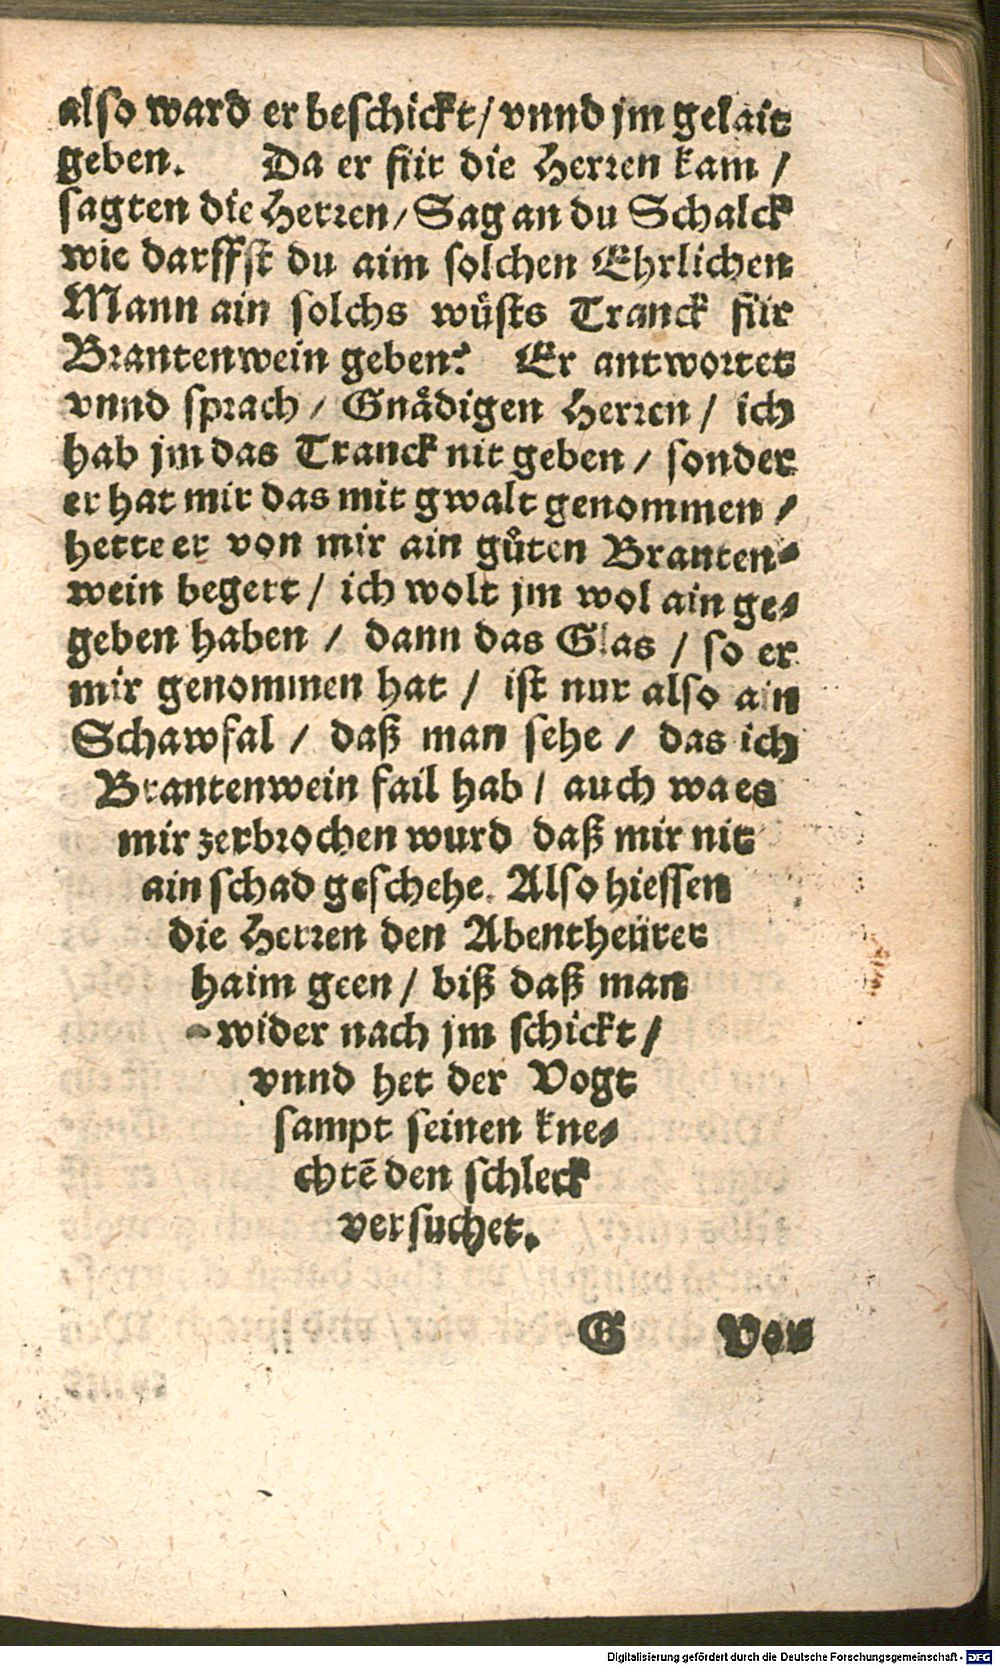 also ward er beschickt/ vnnd jm gelait
geben. Da er für die Herren kam /
sagten die Herren/ Sag an du Schalck
wie darffst du aim solchen Ehrlichen
Mann ain solchs wüsts Tranck für
Brantenwein geben? Er antwortet
vnnd sprach / Gnådigen Herren / ich
hab jm das Tranck nit geben / sonder
er hat mir das mit gwalt genommen /
hette er von mir ain gůten Branten-
wein begert / ich wolt jm wol ain ge-
geben haben / dann das Glas / so er
mir genommen hat / ist nur also ain
Schawfal / daß man sehe / das ich
Brantenwein fail hab / auch wa es
mir zerbrochen wurd daß mir nit
ain schad geschehe. Also hiessen
die Herren den Abentheürer
haim geen / biß daß man
wider nach jm schickt /
vnnd het der Vogt
sampt seinen kne-
chtē den schleck
versuchet.
G Von
Digitalisierung gefördert durch die Deutsche Forschungsgemeinschaft - DFG